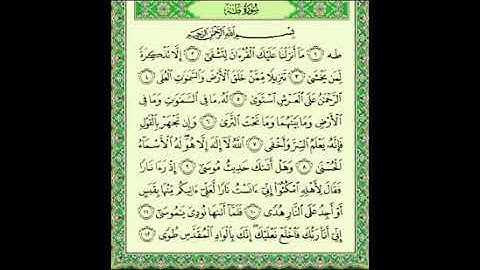 سورة طه
بسم الله الرحمن الرحيم
طه ١ ما أنزلنا عليك القرءان لتشقى ٢ إلا تذكرة
لمن يخشى ٣ تنزيلا ممن خلق الأرض والسموت العلى ٤
الرحمن على العرش استوى ٥ له ما في السموت وما في
الأرض وما بينهما وما تحت الثرى ٦ وإن تجهر بالقول
فإنه يعلم السر وأخفى ٧ الله لا إله إلا هو له الأسماء
الحسنى ٨ وهل أتىك حديث موسى ٩ إذ رءا نارا
فقال لأهله امكثوا إني ءانست نارا لعلي ءاتيكم منها بقبس
أو أجد على النار هدى ١٠ فلما أتىها نودي يموسى ١١
إني أنا ربك فاخلع نعليك إنك بالواد المقدس طوى ١٢